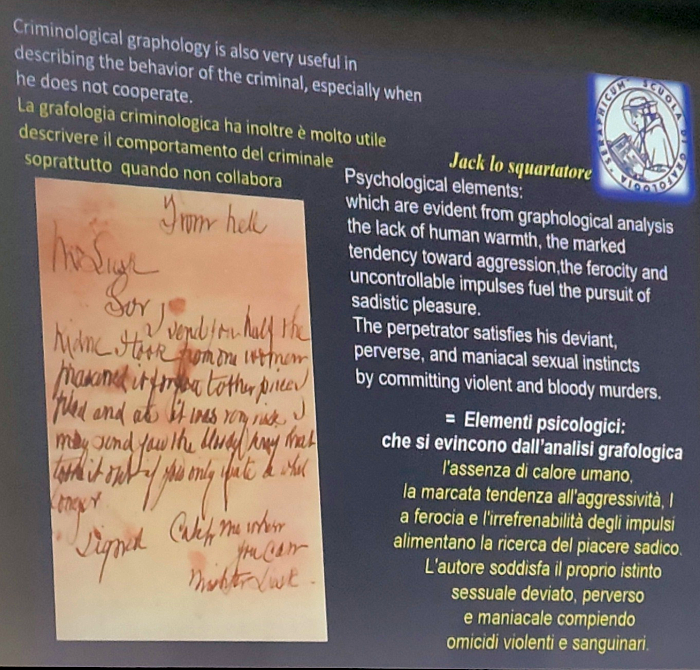 Criminological graphology is also very useful in
describing the behavior of the criminal, especially when
he does not cooperate.
La grafologia criminologica ha inoltre è molto utile
descrivere il comportamento del criminale
soprattutto quando non collabora
SERAPHICUM SCUOLA DI GRAFOLOGIA
Jack lo squartatore
Psychological elements:
which are evident from graphological analysis
the lack of human warmth, the marked
tendency toward aggression,the ferocity and
uncontrollable impulses fuel the pursuit of
sadistic pleasure.
The perpetrator satisfies his deviant,
perverse, and maniacal sexual instincts
by committing violent and bloody murders.
= Elementi psicologici:
che si evincono dall'analisi grafologica
l'assenza di calore umano,
la marcata tendenza all'aggressività, l
a ferocia e l'irrefrenabilità degli impulsi
alimentano la ricerca del piacere sadico.
L'autore soddisfa il proprio istinto
sessuale deviato, perverso
e maniacale compiendo
omicidi violenti e sanguinari.
From hell
Mr Lusk
Sor
I send you half the
Kidne I took from one women
prasarved it for you tother piece I
fried and ate it was very nise I
may send you the bloody knif that
took it out if you only wate a whil
longer
signed Catch me when
you can
Mishter Lusk.